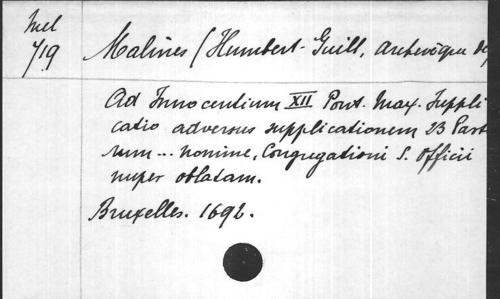 Mel
719
Malines (Humbert-Guill, archevêque de
Ad Innocentium XII Pont. Max. Suppli
catio adversus supplicationem 23 Past
rum ... nomine, Congregationi S. Officii
nuper oblatam.
Bruxelles. 1692.